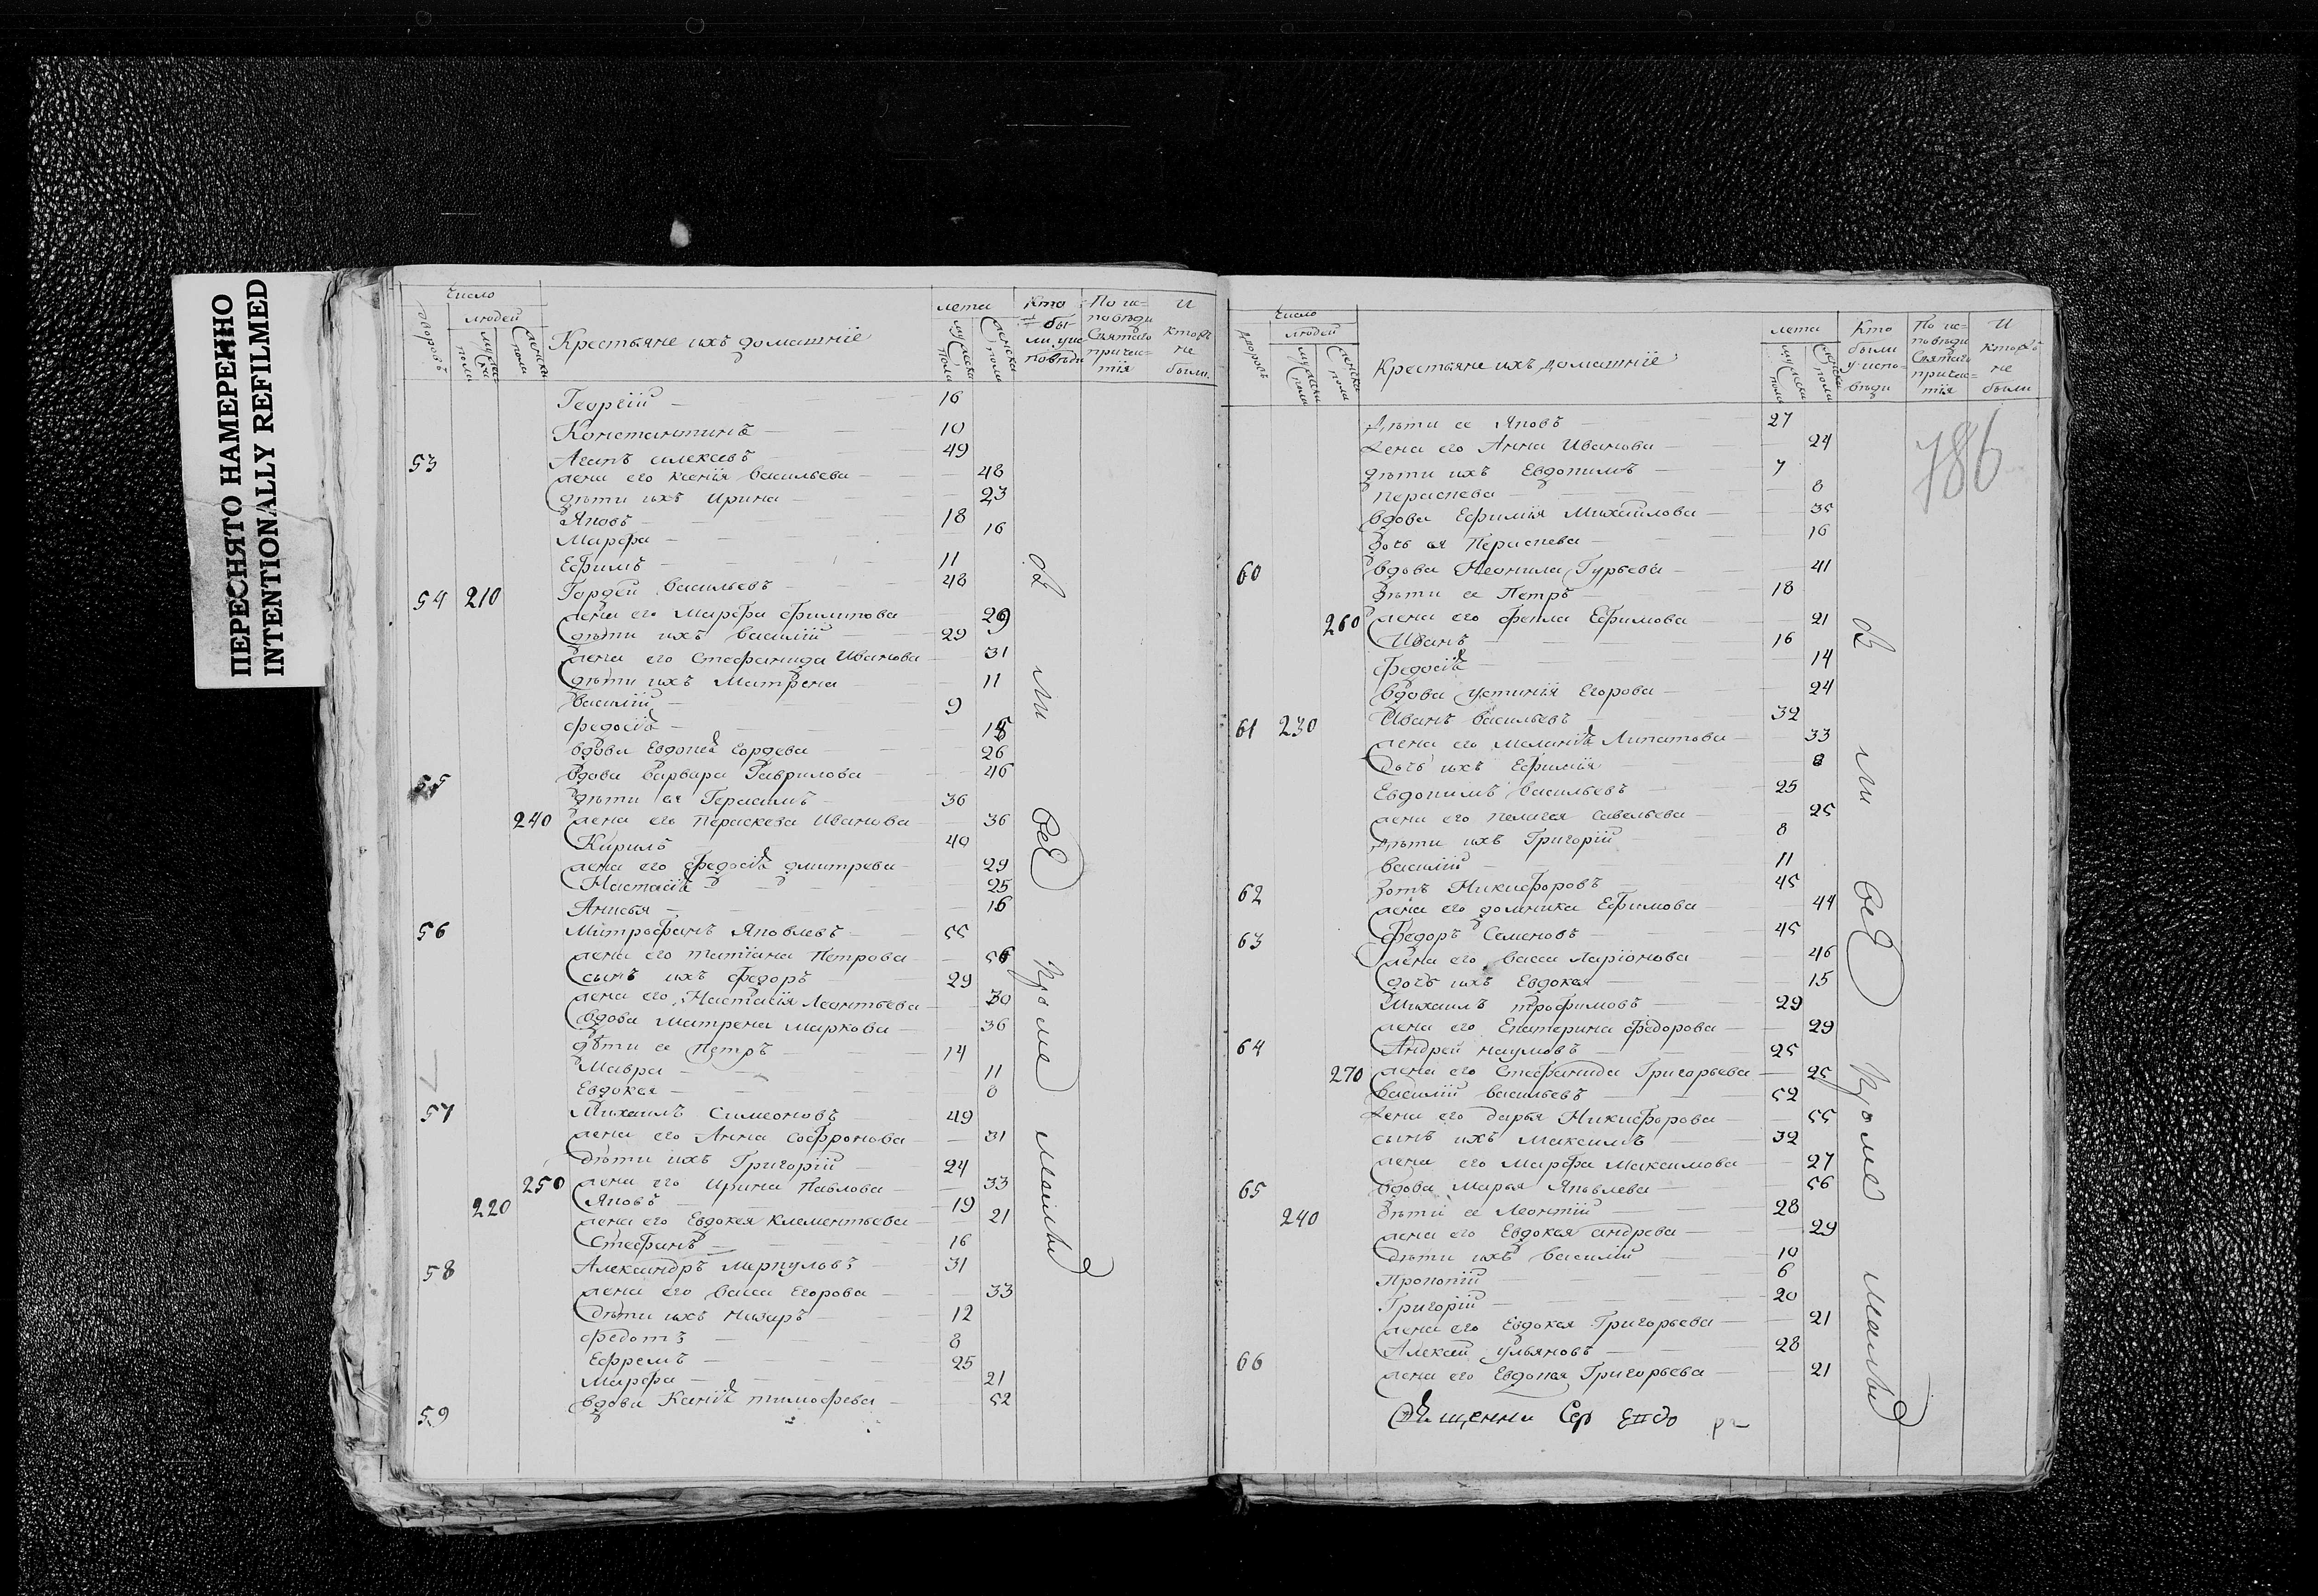 ПЕРЕСНЯТО НАМЕРЕННО
INTENTIONALLY REFILMED
Число
дворовъ
людей
мужеска полу
женска полу
Крестьяне ихъ домашнїе
лета
мужеска полу
женска полу
Кто были у исповѣди
По исповѣди Святаго причастїя
И кторѣ не были
Георгїй 16
Константинъ 10
53 Агапъ алексеевъ 49
жена его Ксенїя васильева 48
дѣти ихъ Ирина 23
Яковъ 18
Марфа 16
Ефимъ 11
54 210 Гордей васильевъ 48
жена его Марфа филипова
дѣти ихъ василїй 29
жена его Стефанида Иванова 31
дѣти ихъ Матрена 11
василїй 9
федосїѧ
вдова Евдокеѧ Гордева 26
55 вдова варвара Гаврилова 46
дѣти ея Герасимъ 36
240 жена его Параскева Иванова 36
Кирилъ 40
жена его федосїѧ дмитрева 29
Настасїѧ 25
Анисья 16
56 Митрофанъ Яковлевъ 55
жена его татїана Петрова 56
сынъ ихъ федоръ 29
жена его Настасїя Леонтьева 30
вдова Матрена Маркова 36
дѣти ее Петръ 14
Мавра 11
Евдокея 8
57 Михаилъ Симеоновъ 49
жена его Анна Софронова 31
дѣти ихъ Григорїй 24
250 жена его Ирина Павлова 33
220 Яковъ 19
жена его Евдокея Клементьева 21
Стефанъ 16
58 Александръ меркуловъ 31
жена его васса Егорова 33
дѣти ихъ назаръ 12
федотъ 8
Ефремъ 25
Марфа 21
59 вдова Ксенїѧ тимофева 52
Число
дворовъ
людей
мужеска полу
женска полу
Крестьяне ихъ домашнїе
лета
мужеска полу
женска полу
Кто были у исповѣди
По исповѣди Святаго причастїя
И кторѣ не были
786
дѣти ее Яковъ 27
жена его Анна Иванова 24
дѣти ихъ Евдокимъ 7
Параскева 8
вдова Ефимїя Михайлова 35
дочь ея Параскева 16
60 вдова Неонила Гурьева 41
дѣти ее Петръ 18
260 жена его фекла Ефимова 21
Иванъ 16
федосїѧ 14
вдова устинїя Егорова 24
61 230 Иванъ васильевъ 32
жена его Меланїѧ Липатова 33
дочь ихъ Ефимїя 8
Евдокимъ васильевъ 25
жена его пелагея савельева 25
дѣти ихъ Григорїй 8
василїй 11
62 Зотъ Никифоровъ 45
жена его домника Ефимова 44
63 федоръ Семеновъ 45
жена его васса ларїонова 46
дочь ихъ Евдокея 15
Михаилъ трофимовъ 29
жена его Екатерина федорова 29
64 Андрей наумовъ 25
270 жена его Стефанида Григорьева 25
василїй васильевъ 52
жена его дарья Никифорова 55
сынъ ихъ Максимъ 32
жена его Марфа Максимова 27
65 вдова Марья Яковлева 56
240 дѣти ее Леонтїй 28
жена его Евдокея андрева 29
дѣти ихъ василїй 10
Прокопїй 6
Григорїй 20
жена его Евдокея Григорьева 21
66 Алексей ульяновъ 28
жена его Евдокея Григорьева 21